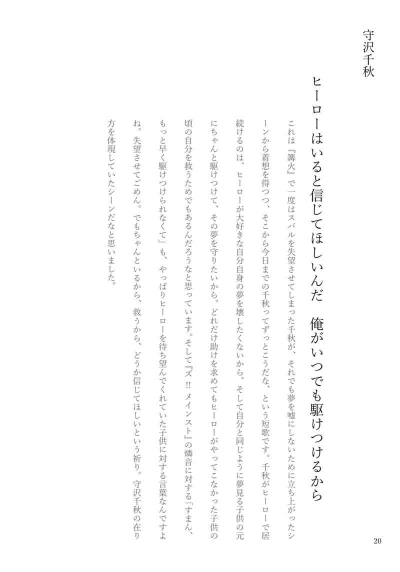 守沢千秋
ヒーローはいると信じてほしいんだ　俺がいつでも駆けつけるから
これは『篝火』で一度はスバルを失望させてしまった千秋が、それでも夢を嘘にしないために立ち上がったシ
ーンから着想を得つつ、そこから今日までの千秋ってずっとこうだな、という短歌です。千秋がヒーローで居
続けるのは、ヒーローが大好きな自分自身の夢を壊したくないから。そして自分と同じように夢見る子供の元
にちゃんと駆けつけて、その夢を守りたいから。どれだけ助けを求めてもヒーローがやってこなかった子供の
頃の自分を救うためでもあるんだろうなと思っています。そして『ズ!!メインスト』の燐音に対する「すまん、
もっと早く駆けつけられなくて」も、やっぱりヒーローを待ち望んでくれていた子供に対する言葉なんですよ
ね。失望させてごめん。でもちゃんといるから、救うから、どうか信じてほしいという祈り。守沢千秋の在り
方を体現していたシーンだなと思いました。
20